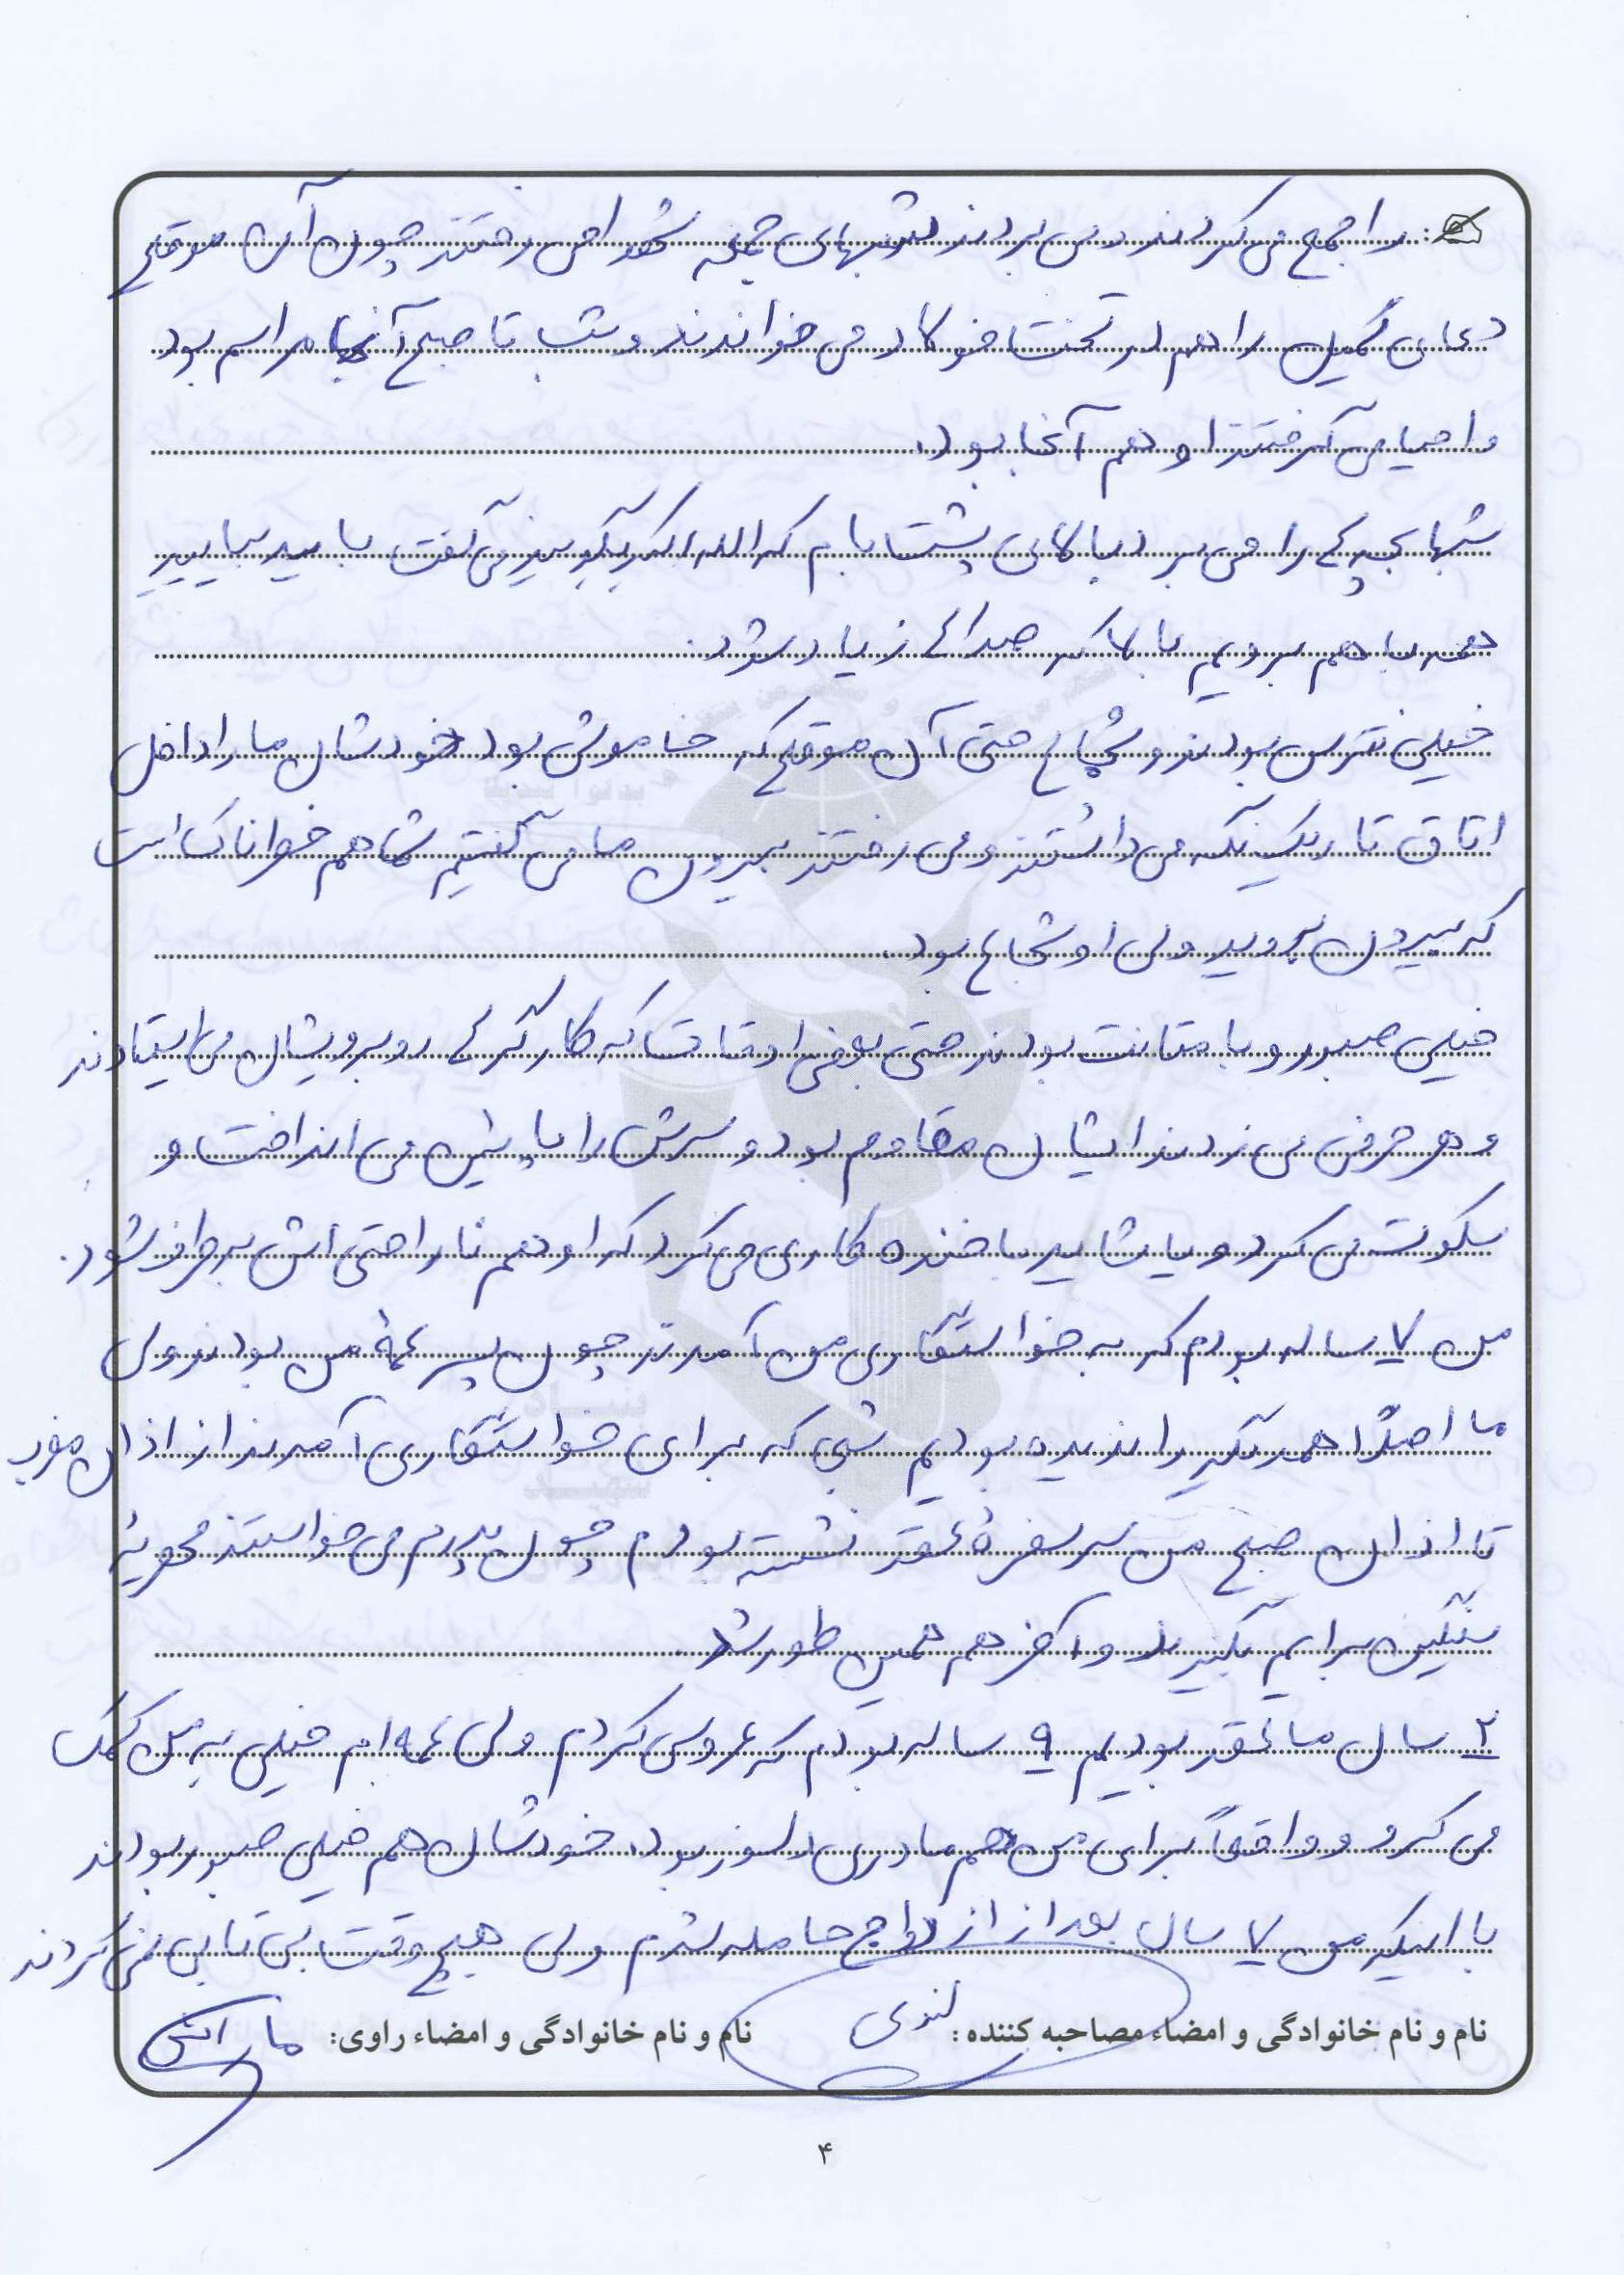 را جمع می کردند و می بردند شبهای جمعه شهدا می رفتند چون آن موقع
دعای کمیل را هم در تخت فولاد می خواندند و شب تا صبح آنجا مراسم بود
و احیا می گرفتند او هم آنجا بود.
شبها بچه ها را می برد بالای پشت بام که الله اکبر بگویند می گفت باید بیایید
همه با هم برویم بالا که صداها زیاد شود.
خیلی نترس بودند و شجاع حتی آن موقع که خاموشی بود خودشان ما را داخل
اتاق تاریک نگه می داشتند و می رفتند بیرون ما می گفتیم شما هم خطرناک است
که بیرون بروید ولی او شجاع بود.
خیلی صبور و با متانت بودند حتی بعضی اوقات که کارگرها روبرویشان می ایستادند
و هر حرفی می زدند ایشان مقاوم بود و سرش را پایین می انداخت و
سکوت می کرد و یا شاید با خنده کاری می کرد که او هم ناراحتی اش برطرف شود.
من ۷ ساله بودم که به خواستگاری من آمدند چون پسر عمه من بودند ولی
ما اصلاً همدیگر را ندیده بودیم شبی که برای خواستگاری آمدند از اذان مغرب
تا اذان صبح من سر سفره عقد نشسته بودم چون پدرم می خواستند مهریه
سنگین برایم بگیرند و آخر هم همین طور شد.
۲ سال ما عقد بودیم ۹ ساله بودم که عروسی کردم ولی عمه ام خیلی به من کمک
می کرد و واقعاً برای من هم مادری دلسوز بود. خودشان هم خیلی صبور بودند
با اینکه من ۷ سال بعد از ازدواج حامله شدم ولی هیچ وقت بی تابی نمی کردند
نام و نام خانوادگی و امضاء مصاحبه کننده: نام و نام خانوادگی و امضاء راوی:
۴